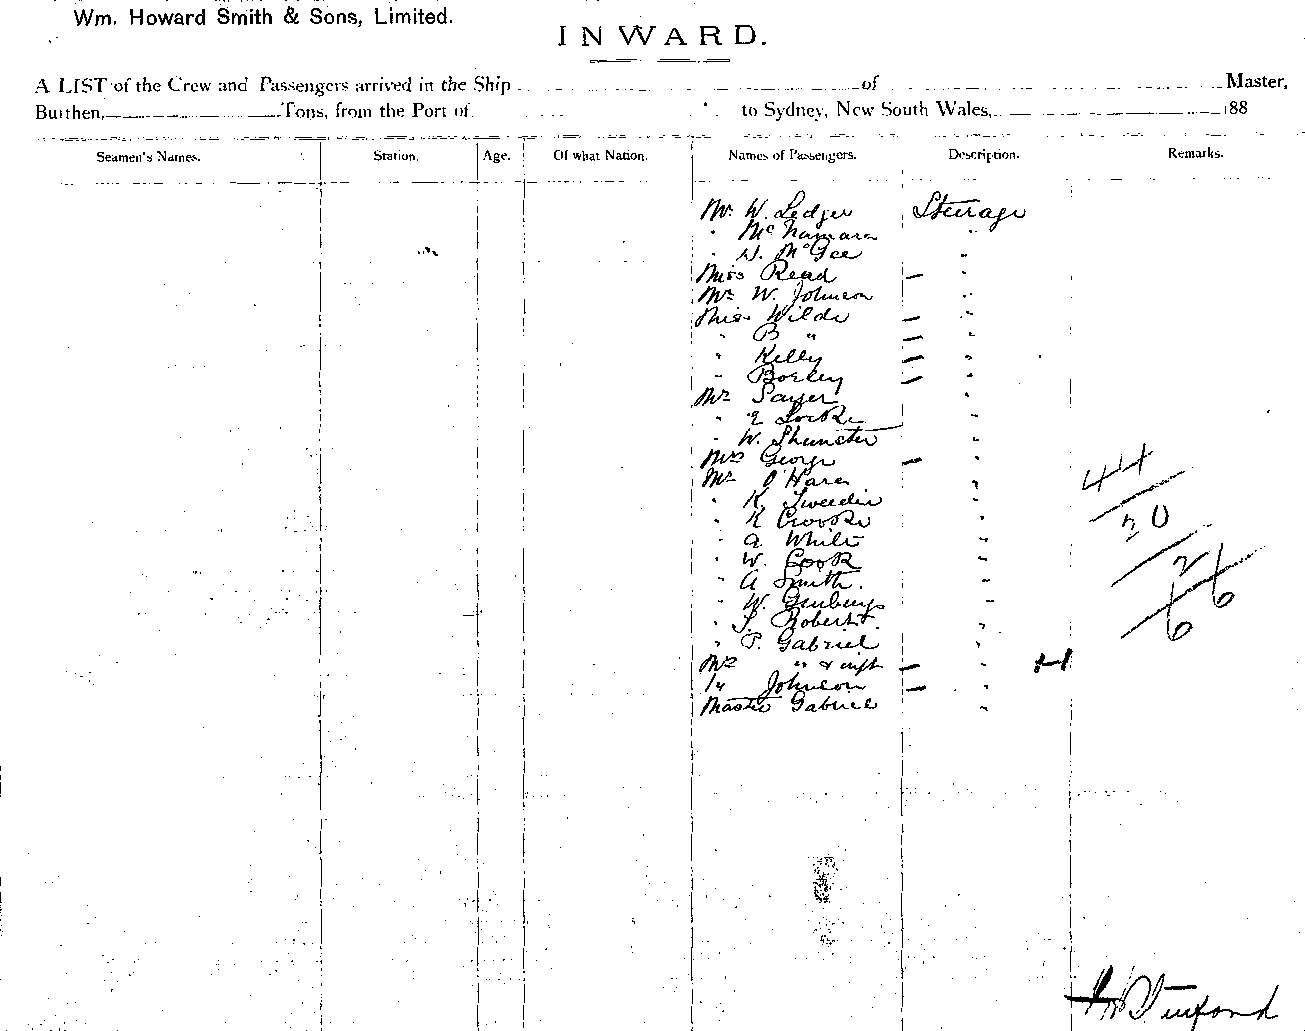 Wm. Howard Smith & Sons, Limited.
INWARD.
A LIST of the Crew and Passengers arrived in the Ship of Master,
Burthen, Tons, from the Port of to Sydney, New South Wales, 188
Seamen's Names. Station. Age. Of what Nation. Names of Passengers. Description. Remarks.
Mr. W. Ledger Steerage
" McNamara "
" McGee "
Miss Read — "
Mr W. Johnson "
Miss Wilde — "
" B " — "
" Kelly — "
" Bosley — "
Mr Sayer "
" E Locke "
" W. "
Mrs George — "
Mr O'Hara "
" K. Tweedie "
" K Crooke "
" A White "
" W. Cook "
" A Smith. "
" W. "
" S. Robert "
" P. Gabriel "
" & inft — "
Johnson — "
Master Gabriel "
44
20
2
6 6